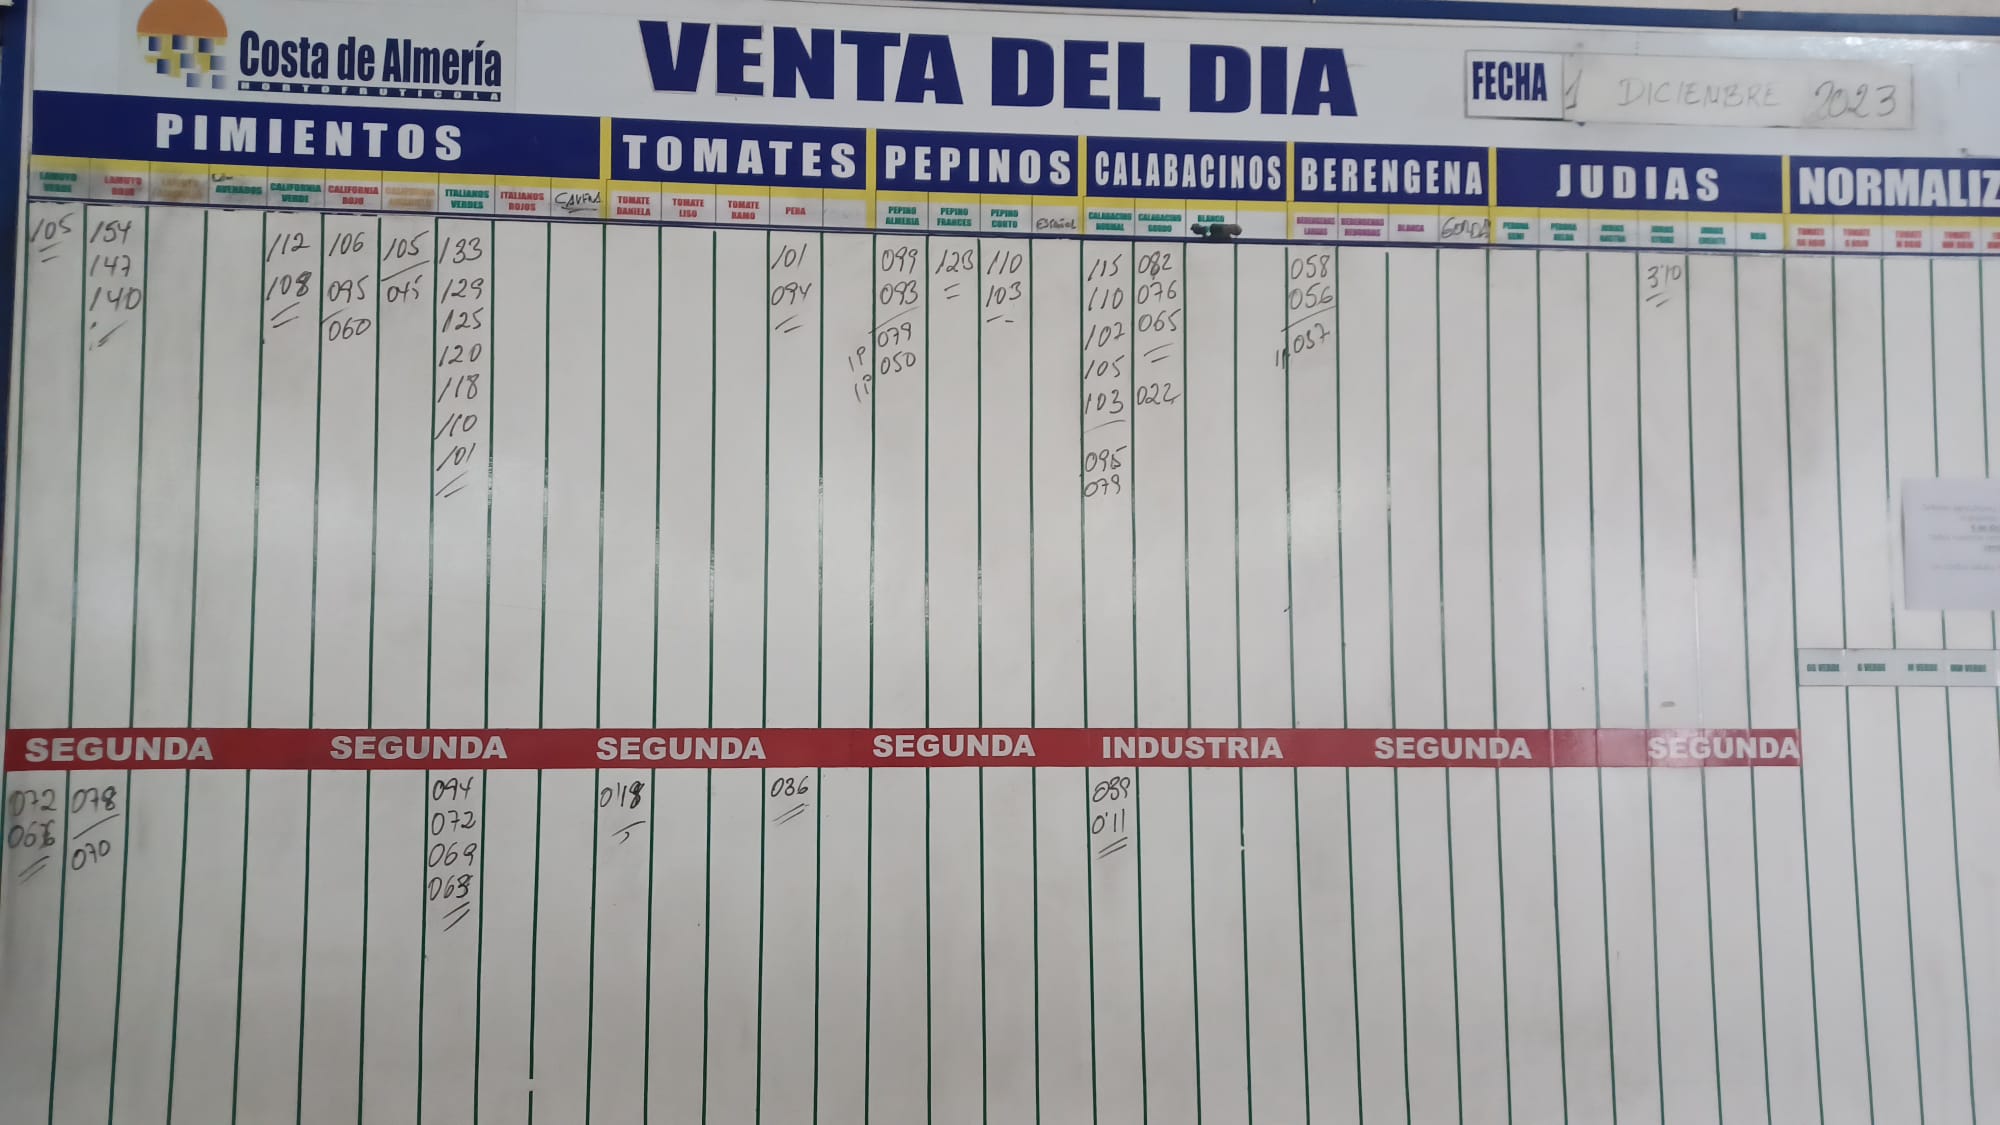 Costa de Almería
HORTOFRUTICOLA
VENTA DEL DIA
FECHA 1 DICIENBRE 2023
PIMIENTOS TOMATES PEPINOS CALABACINOS BERENGENA JUDIAS NORMALIZ
LAMUYO VERDE LAMUYO ROJO ASURADOS CALIFORNIA VERDE CALIFORNIA ROJO CALIFORNIA AMARILLO ITALIANOS VERDES ITALIANOS ROJOS TOMATE DANIELA TOMATE LISO TOMATE RAMO PERA PEPINO ALMERIA PEPINO FRANCES PEPINO CORTO ESPAÑOL CALABACINO NORMAL CALABACINO GORDO BLANCO BERENGENAS LARGAS BERENGENAS REDONDAS BLANCA GORDA
105 154 112 106 105 133 101 099 123 110 115 082 058 3'10
147 108 095 045 129 094 093 103 110 076 056
140 060 125 079 107 065 037
120 1P 050 105
118 1P 103 022
110
101 095
079
GG VERDE G VERDE M VERDE MM VERDE
SEGUNDA SEGUNDA SEGUNDA SEGUNDA INDUSTRIA SEGUNDA SEGUNDA
072 078 094 0'18 036 039
070 072 0'11
069
063